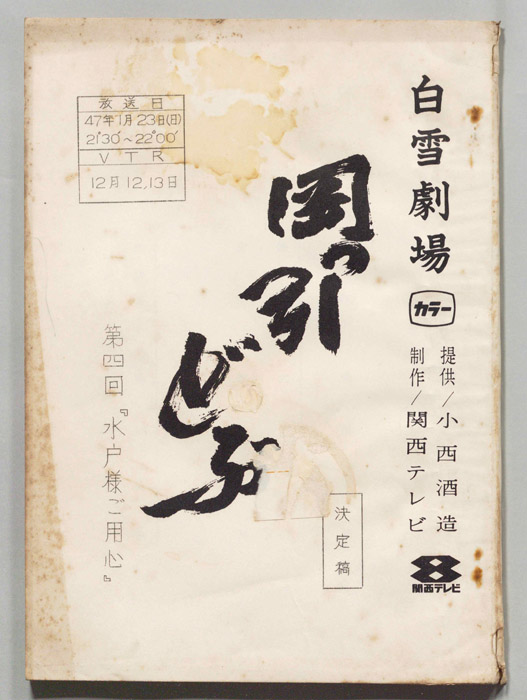 白雪劇場
カラー
提供/小西酒造
制作/関西テレビ
8
関西テレビ
岡っ引どぶ
放送日
47年1月23日(日)
21°30′~22°00′
VTR
12月12,13日
第四回『水戸様ご用心』
決定稿